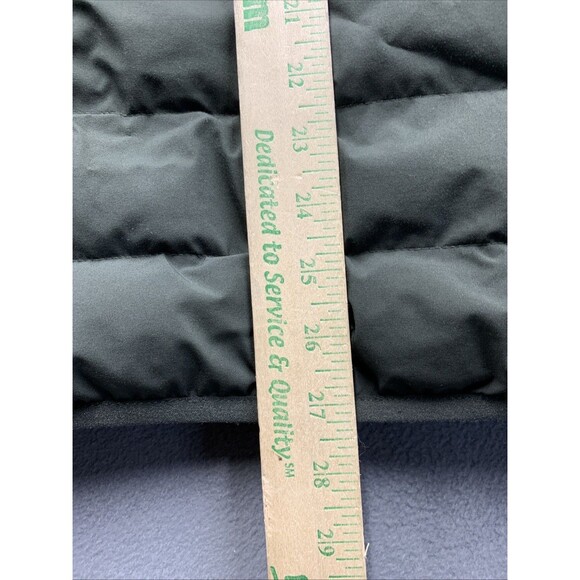 m
Dedicated to Service & Quality.℠
21
22
23
24
25
26
27
28
29